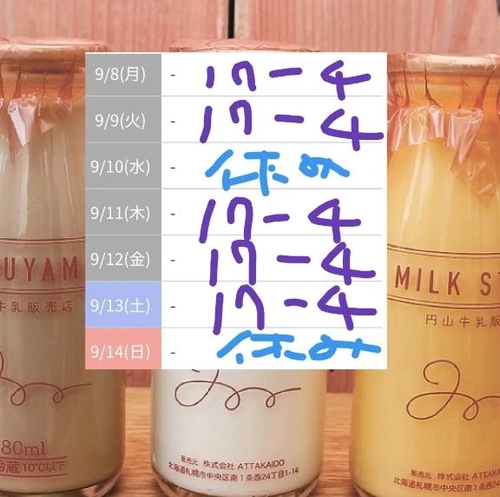 9/8(月) - 17-4
9/9(火) - 17-4
9/10(水) - 休み
9/11(木) - 17-4
9/12(金) - 17-4
9/13(土) - 17-4
9/14(日) - 休み
UYAM
牛乳販売店
80ml
冷蔵10℃以下
販売元 株式会社 ATTAKAIDO
北海道札幌市中央区南1条西24丁目1-14
MILK S
円山牛乳販
販売元 株式会社 ATTAK
北海道札幌市中央区南1条西24丁